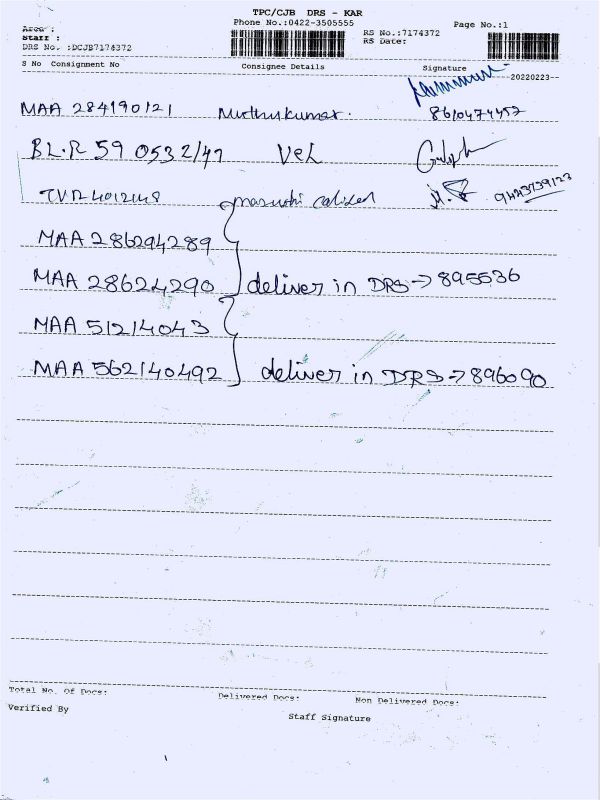 TPC/CJB DRS - KAR
Phone No.:0422-3505555
Page No.:1
Area :
Staff :
DRS No. :DCJB7174372
RS No.:7174372
RS Date:
S No Consignment No Consignee Details Signature
20220223
MAA 284190121 Muthukumar. 8610474457
BLR 59 0532147 Vel
TVR 4012148
MAA 286294289
MAA 28624290 deliver in DRS → 895536
MAA 51214043
MAA 562140492 deliver in DRS → 896090
Total No. Of Docs: Delivered Docs: Non Delivered Docs:
Verified By
Staff Signature